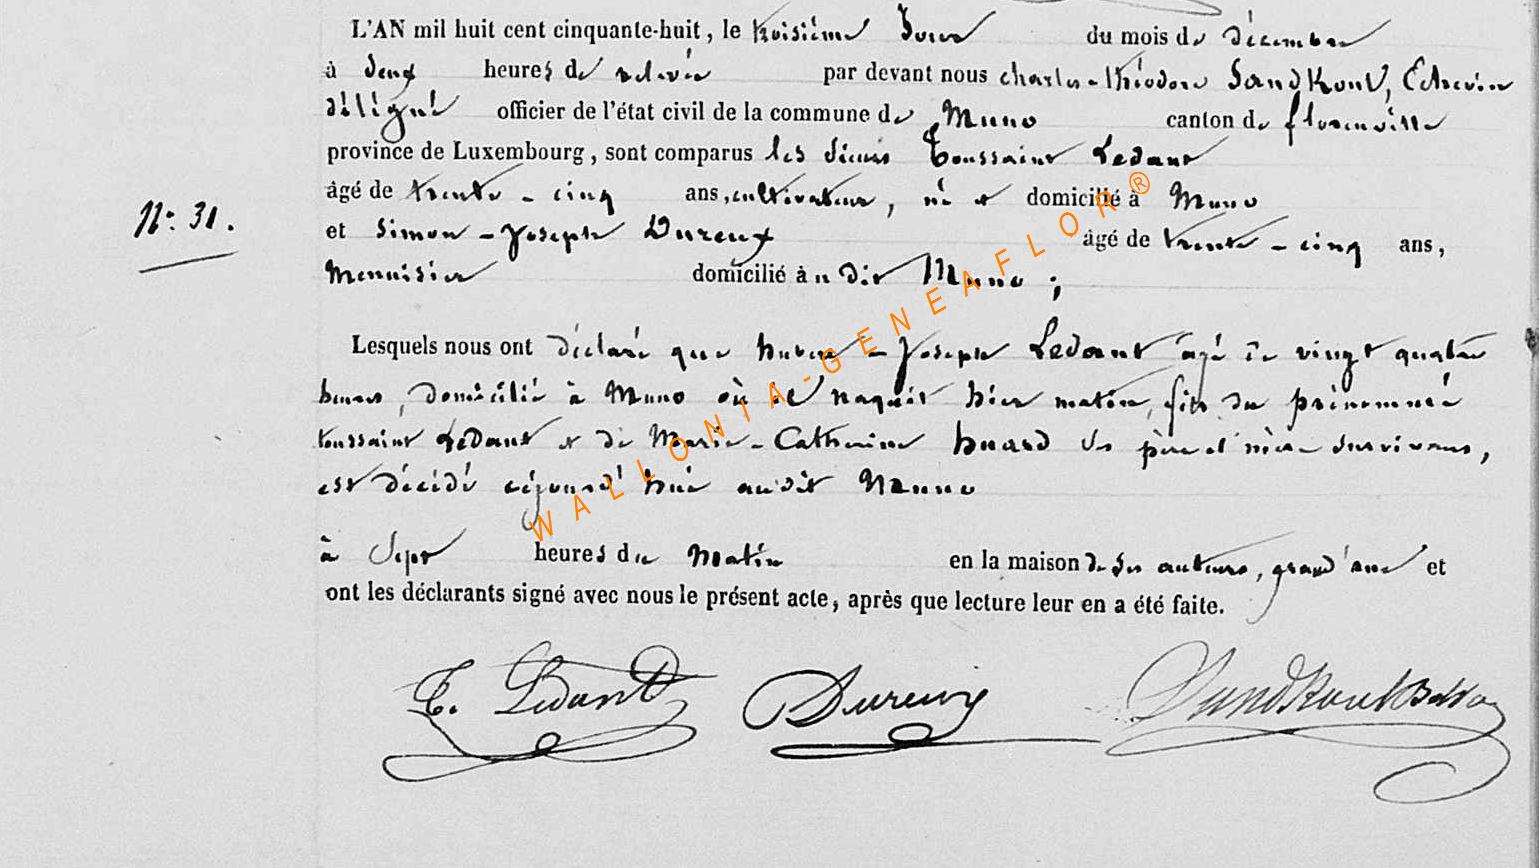 L'AN mil huit cent cinquante-huit, le troisième Jour du mois de décembre
à deux heures de relevée par devant nous charles-théodore Sandkoul, Echevin
délégué officier de l'état civil de la commune de Muno canton de florenville
province de Luxembourg, sont comparus les sieurs Toussaint Ledant
âgé de trente-cinq ans, cultivateur, né et domicilié à Muno
N.º 31.
et Simon-Joseph Dureux âgé de trente-cinq ans,
Menuisier domicilié à u dit Muno ;
Lesquels nous ont déclaré que hubert-Joseph Ledant âgé de vingt quatre
heures, domicilié à Muno où il naquit hier matin, fils du prénommé
toussaint Ledant et de Marie-Catherine huard ses père et mère survivans,
est décédé cejourd'hui audit Muno
à Sept heures du Matin en la maison de ses auteurs, grand'rue et
ont les déclarants signé avec nous le présent acte, après que lecture leur en a été faite.
T. Ledant Dureux Sandkoul
WALLONIA-GENEAFLOR®